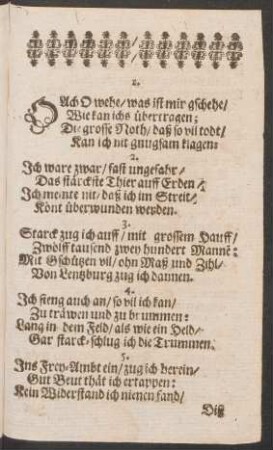 1.
Ach O wehe/ was ist mir gschehe/
Wie kan ichs übertragen;
Die grosse Noth/ daß so vil todt/
Kan ich nit gnugsam klagen:
2.
Jch ware zwar/ fast ungefahr/
Das stärckste Thier auff Erden/
Jch meinte nit/ daß ich im Streit/
Könt überwunden werden.
3.
Starck zug ich auff/ mit grossem Hauff/
Zwölff tausend zwey hundert Mannẽ:
Mit Gschützen vil/ ohn Maß und Zihl/
Von Lentzburg zug ich dannen.
4.
Jch fieng auch an/ so vil ich kan/
Zu träwen und zu brummen:
Lang in dem Feld/ als wie ein Held/
Gar starck schlug ich die Trummen.
5.
Jns Frey-Ambt ein/ zug ich herein/
Gut Beut thät ich ertappen:
Kein Widerstand ich nienen fand/
Diß